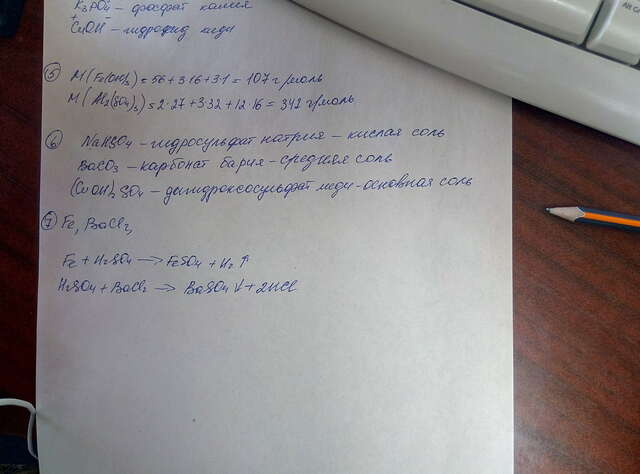 K₃PO₄ – фосфат калия
CuOH – гидроксид меди
⑤ M(Fe(OH)₃) = 56 + 3·16 + 3·1 = 107 г/моль
M(Al₂(SO₄)₃) = 2·27 + 3·32 + 12·16 = 342 г/моль
⑥ NaHSO₄ – гидросульфат натрия – кислая соль
BaCO₃ – карбонат бария – средняя соль
(CuOH)₂SO₄ – дигидроксосульфат меди – основная соль
⑦ Fe, BaCl₂,
Fe + H₂SO₄ → FeSO₄ + H₂↑
H₂SO₄ + BaCl₂ → BaSO₄↓ + 2HCl